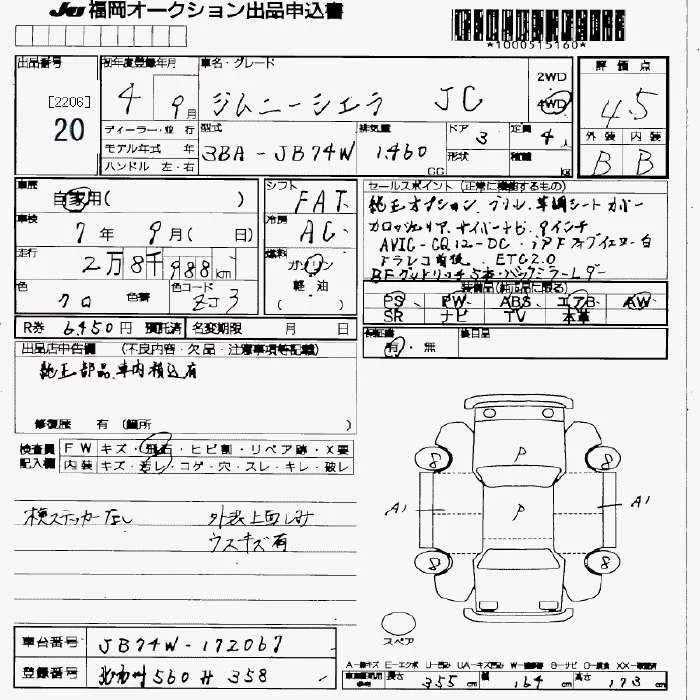 JU 福岡オークション出品申込書
*1000515160*
出品番号 初年度登録年月 車名・グレード 評価点
[2206] 20
4年 9月 ジムニーシエラ JC 2WD 4WD 4.5
ディーラー・並行 型式 排気量 ドア 定員 外装 内装
モデル年式 年 3BA-JB74W 1,460 CC 3 4人 B B
ハンドル 左・右 形状 積載
車歴 自家用( ) シフト FAT セールスポイント (正常に機能するもの)
純正オプション グリル 革調シートカバー
車検 7年 9月( 日) 冷房 AC カロッツェリア サイバーナビ 9インチ
走行 2万8千988km 燃料 ガソリン AVIC-CQ12-DC
軽油 ドラレコ前後 ETC2.0
色 クロ 色替 色コード ZJ3 ( ) BFグッドリッチ5本
装備品(純正品に限る)
PS PW ABS エアB AW
SR ナビ TV 本革
R券 6,450円 預託済 名変期限 月 日
保証書 有・無 後日品
出品店申告欄 (不良内容・欠品・注意事項等記載)
純正部品車内積込有
修復歴 有 (箇所 )
検査員記入欄 FW キズ・飛石・ヒビ割・リペア跡・X要
内装 キズ・汚レ・コゲ・穴・スレ・キレ・破レ
検ステッカーなし 外装上面しみ
ウスキズ有
8 P 8
A1 P A1
8 8
スペア
車台番号 JB74W-172067
登録番号 北九州 560 サ 358
長さ 355 cm 幅 164 cm 高さ 173 cm